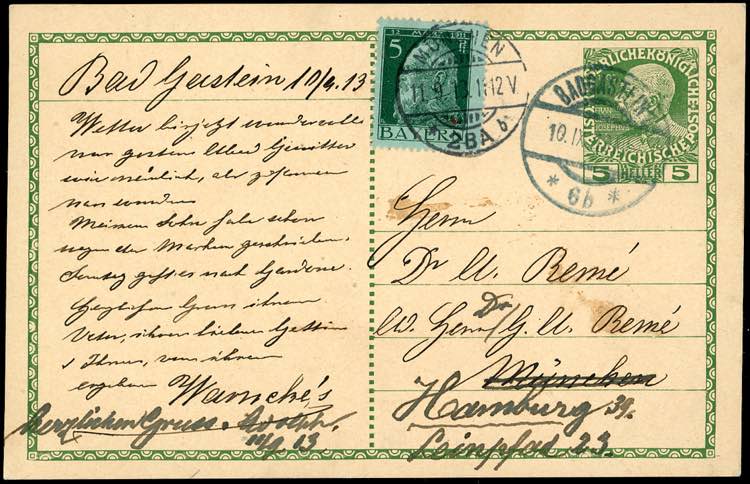 Bad Gastein 10/9.13
Wetter bis jetzt wundervoll
nur gestern Abend Gewitter
wie neulich, als zusammen
wir wurden
Meinem Sohn habe schon
wegen der Marken geschrieben.
Sonntag geht es nach Gardone.
Herzlichen Gruss Ihrem
Vater, Ihrer lieben Gattin
u Ihnen, von Ihrem
ergebenen
Warncke's
Herzlichen Gruss.
11/9.13
5
12 MÄRZ 1911
BAYERN
MÜNCHEN
11. 9. 11-12 V.
2BA b
BADGASTEIN
10. IX
* 6b *
5 HELLER 5
Herrn
Dr U. Remé
Ad. Herrn Dr / G. U. Remé
München
Hamburg 39.
Leinpfad 23.